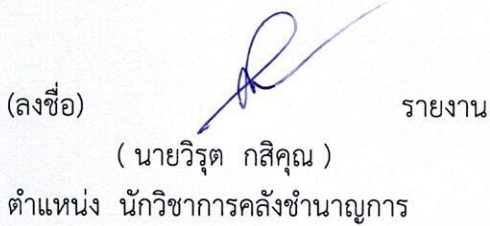 (ลงชื่อ) รายงาน
( นายวิรุต กสิคุณ )
ตำแหน่ง นักวิชาการคลังชำนาญการ